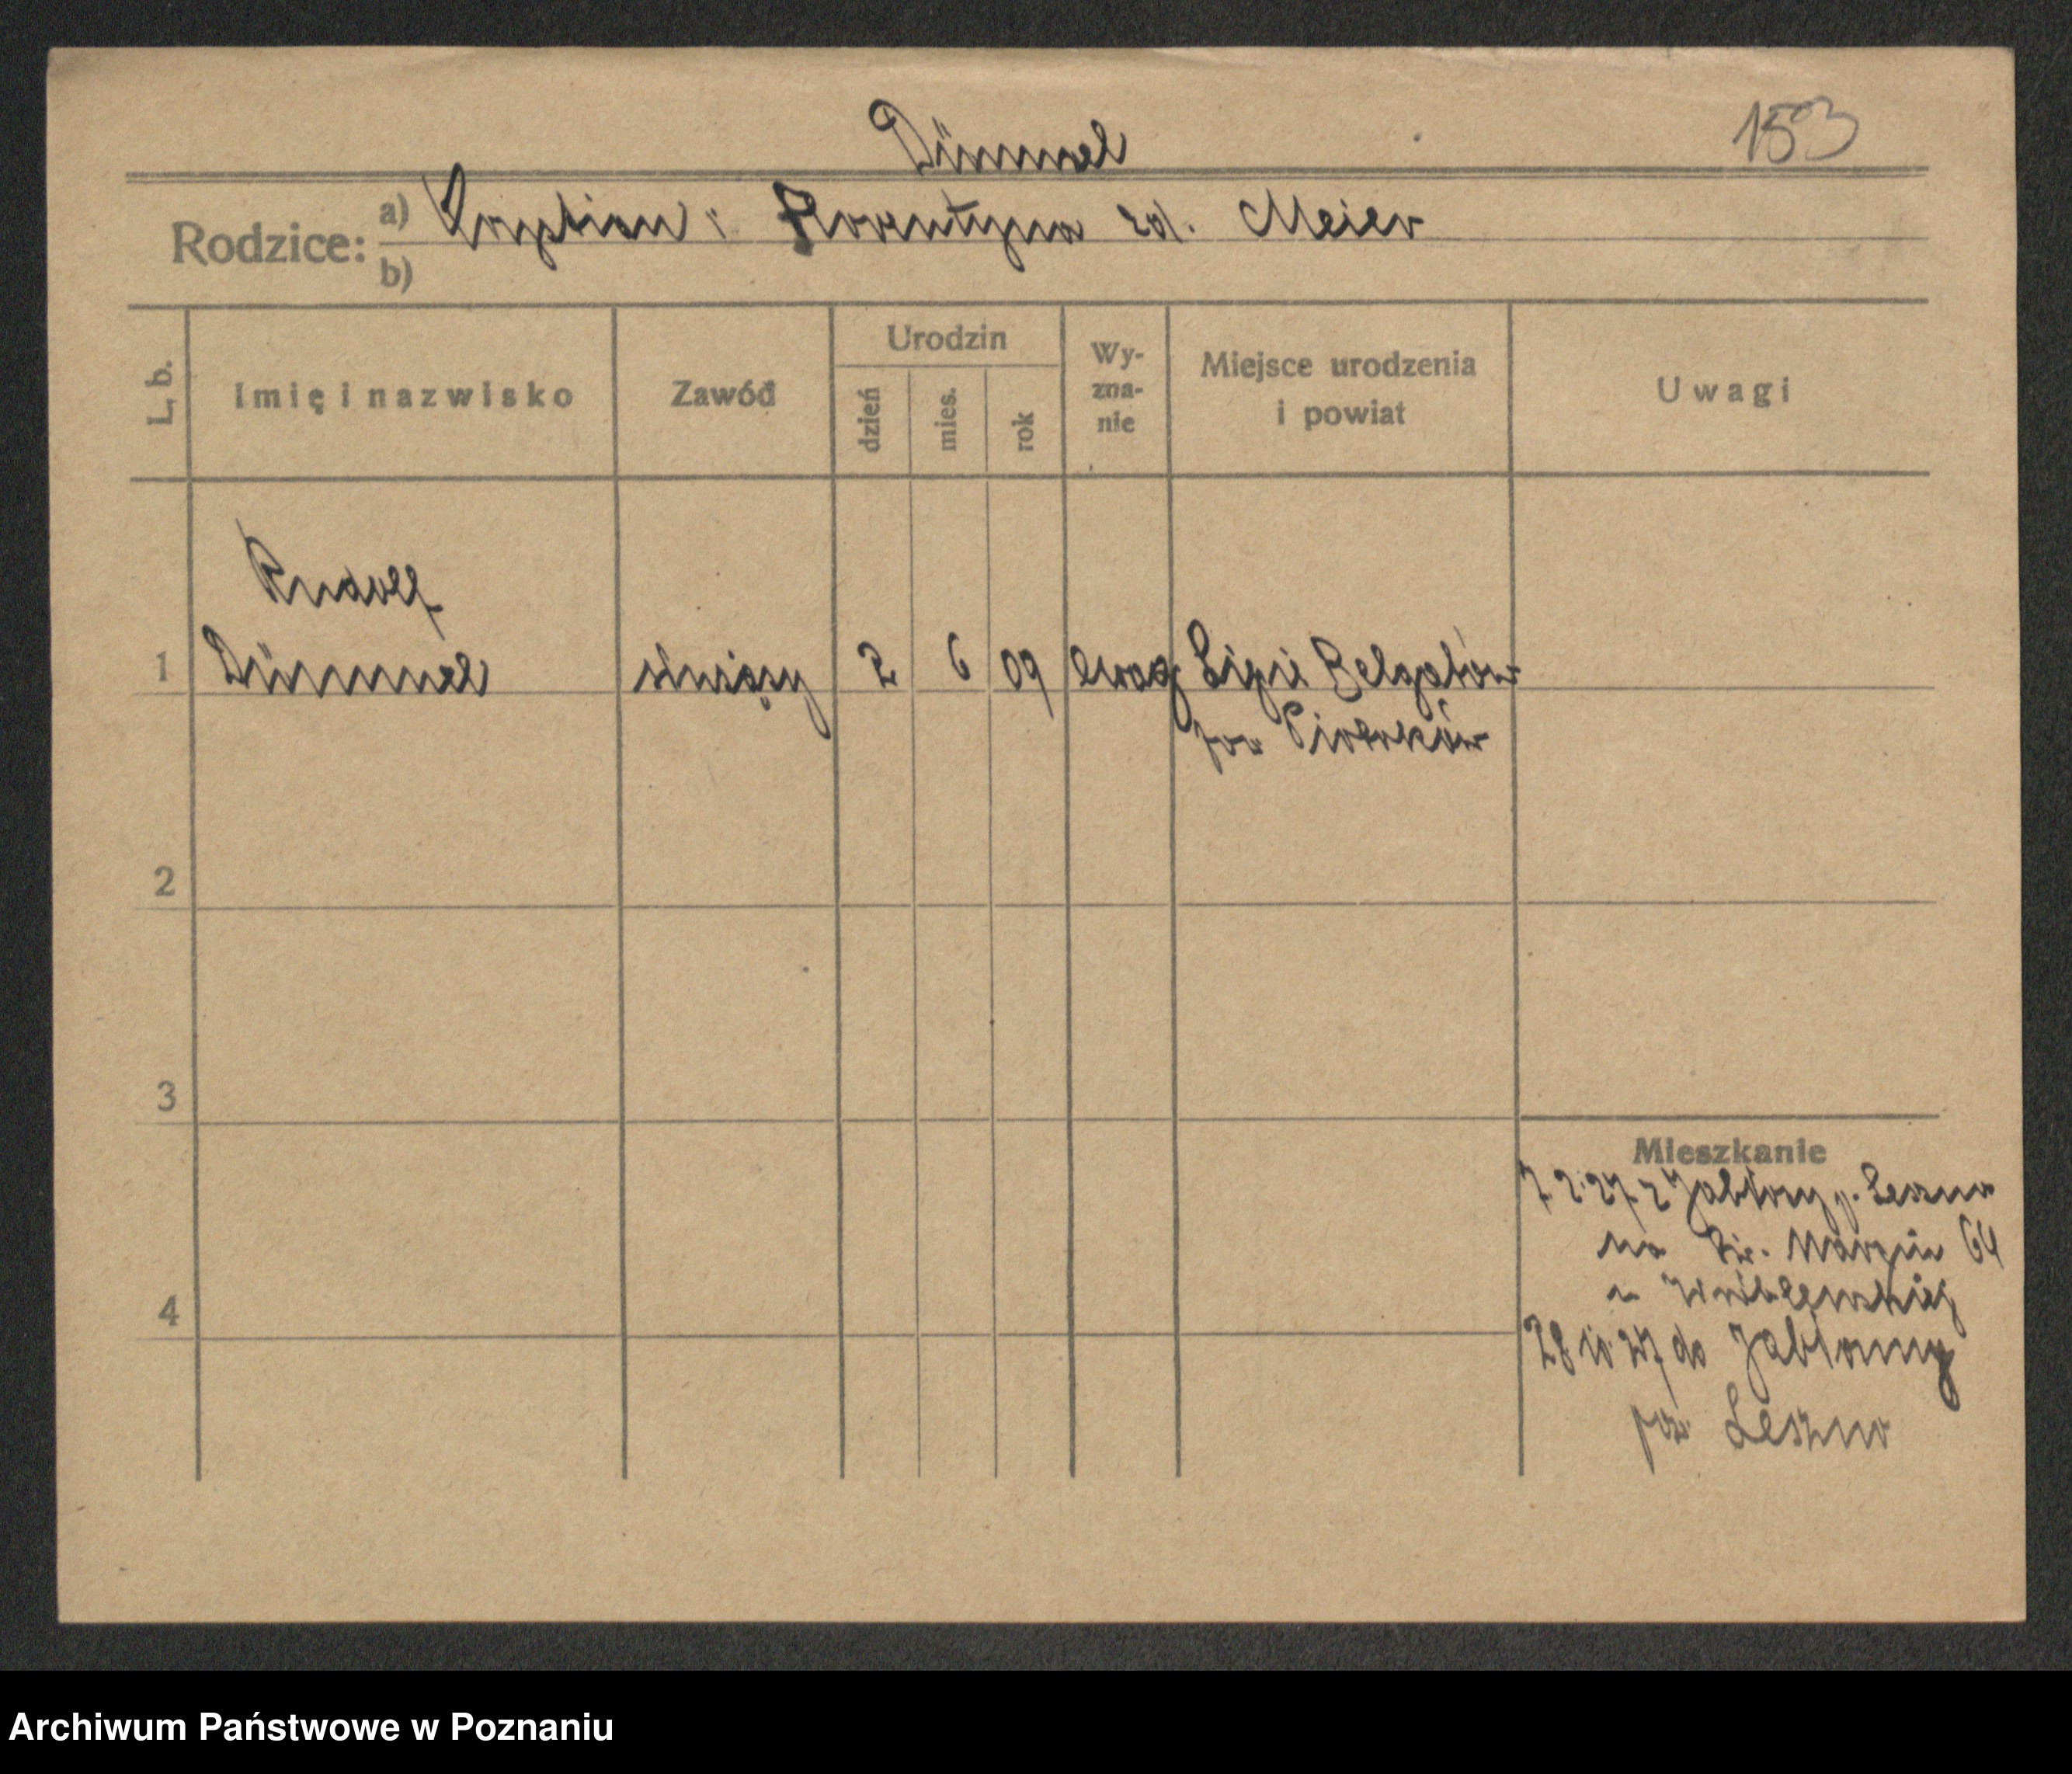 Dümmel
153
Rodzice: a) Krystian i Florentyna zd. Meier
b)
L. b.
Imię i nazwisko
Zawód
Urodzin
dzień
mies.
rok
Wy-
zna-
nie
Miejsce urodzenia
i powiat
Uwagi
Rudolf
1 Dümmel służący 2 6 09 ewag Lipie Belgatów
pow Piotrków
2
3
Mieszkanie
7.2.27 z Jabłony p. Leszno
na Św. Marcin 64
u
4
28 10 27 do Jabłonny
pow Leszno
Archiwum Państwowe w Poznaniu